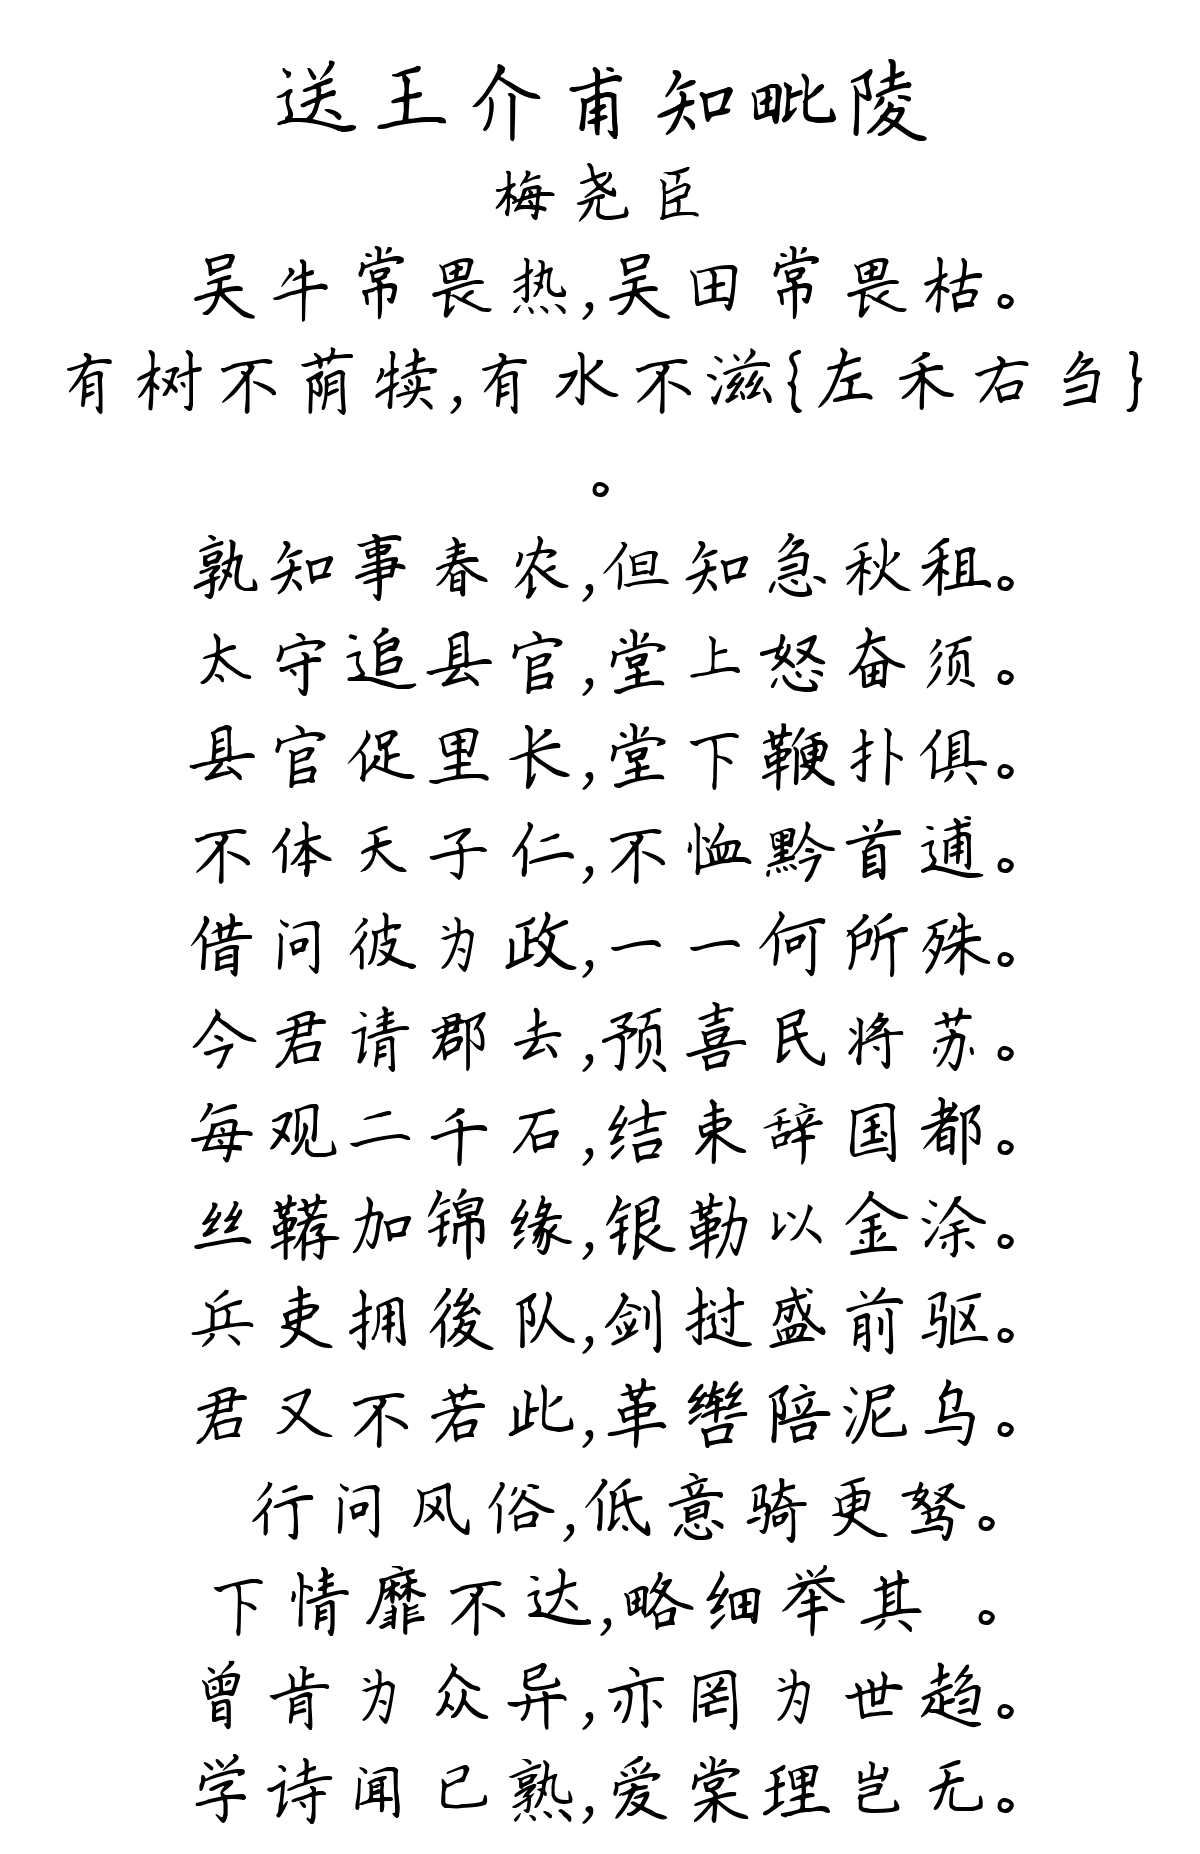 送王介甫知毗陵
梅尧臣
吴牛常畏热,吴田常畏枯。
有树不荫犊,有水不滋{左禾右刍}
。
孰知事春农,但知急秋租。
太守追县官,堂上怒奋须。
县官促里长,堂下鞭扑俱。
不体天子仁,不恤黔首逋。
借问彼为政,一一何所殊。
今君请郡去,预喜民将苏。
每观二千石,结束辞国都。
丝鞯加锦缘,银勒以金涂。
兵吏拥後队,剑挝盛前驱。
君又不若此,革辔障泥乌。
行问风俗,低意骑更驽。
下情靡不达,略细举其 。
曾肯为众异,亦罔为世趋。
学诗闻已熟,爱棠理岂无。